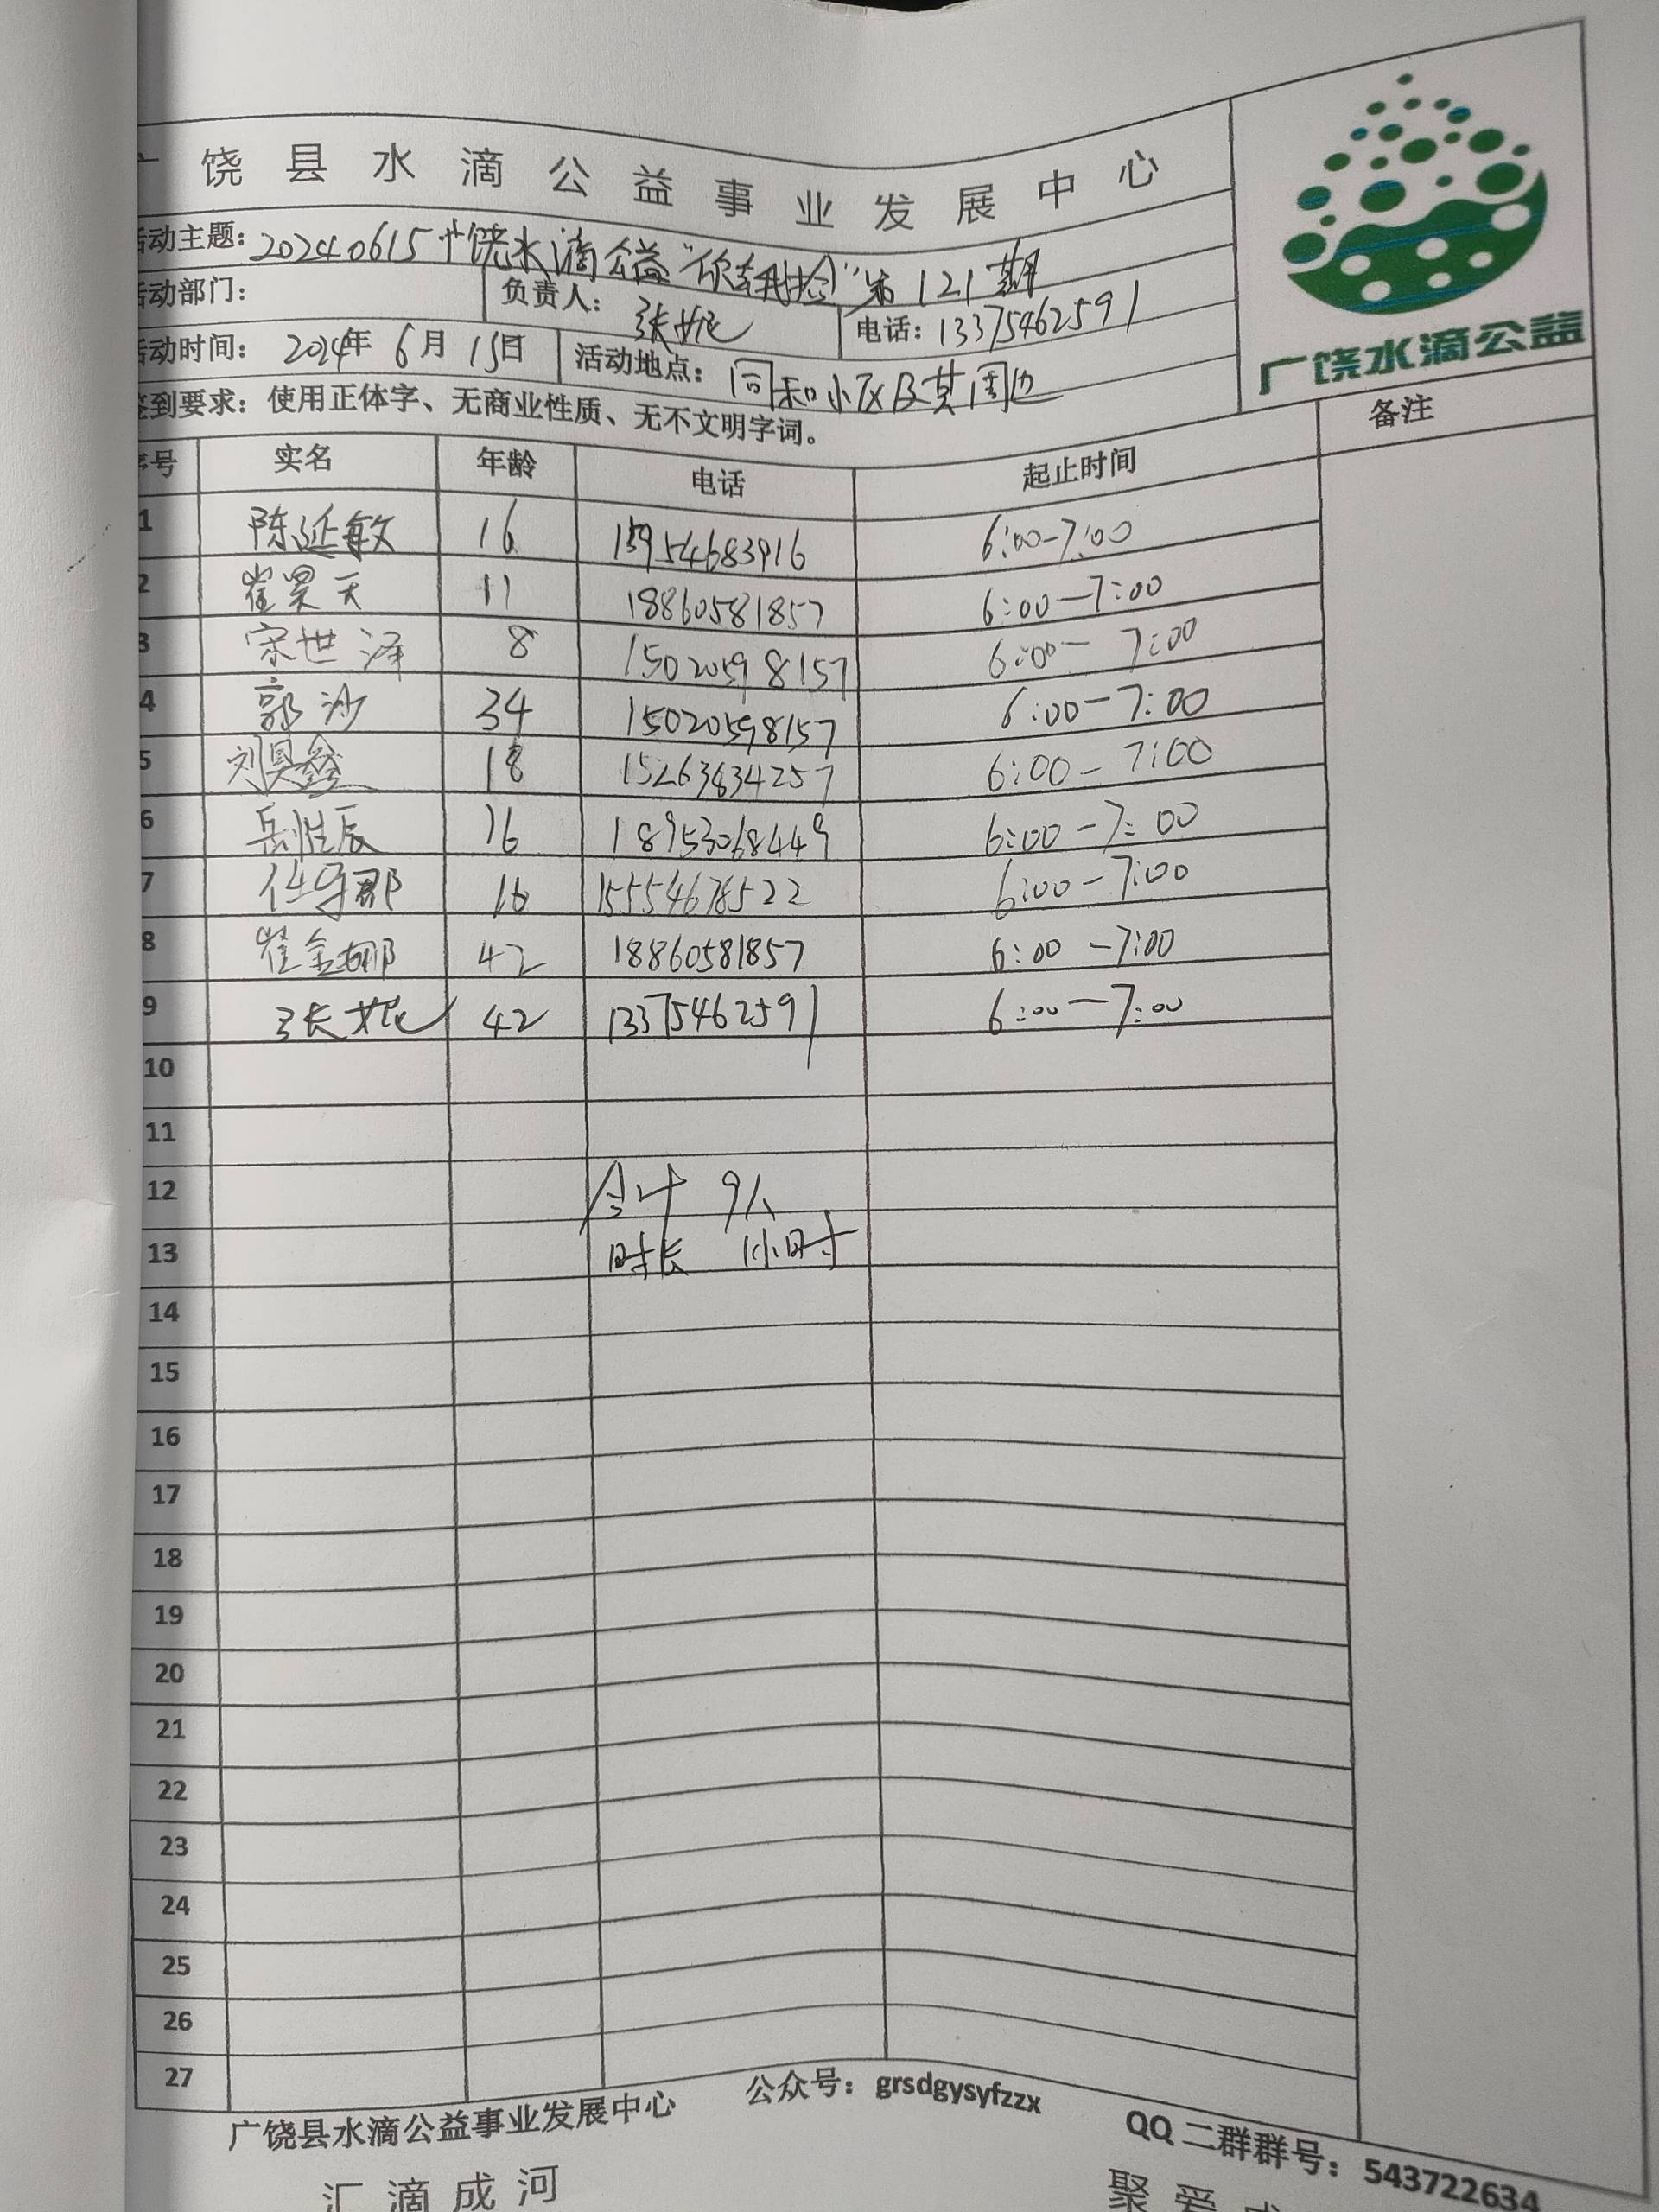 广饶县水滴公益事业发展中心
广饶水滴公益
活动主题：20240615广饶水滴公益“你弃我捡”第121期
活动部门： 负责人：张妮 电话：13375462591
活动时间：2024年6月15日 活动地点：同和小区及其周边
签到要求：使用正体字、无商业性质、无不文明字词。
序号 实名 年龄 电话 起止时间 备注
1 陈延敏 16 15954683916 6:00-7:00
2 崔昊天 11 18860581857 6:00—7:00
3 宋世泽 8 15020598157 6:00— 7:00
4 郭沙 34 15020598157 6:00-7:00
5 刘昊鑫 18 15263834257 6:00-7:00
6 岳 辰 16 18953068449 6:00-7:00
7 16 15554678522 6:00-7:00
8 崔金娜 42 18860581857 6:00-7:00
9 张妮 42 13375462591 6:00—7:00
10
11
12 合计 9人
13 时长 1小时
14
15
16
17
18
19
20
21
22
23
24
25
26
27
广饶县水滴公益事业发展中心 公众号：grsdgysyfzzx QQ二群群号：543722634
汇滴成河 聚爱